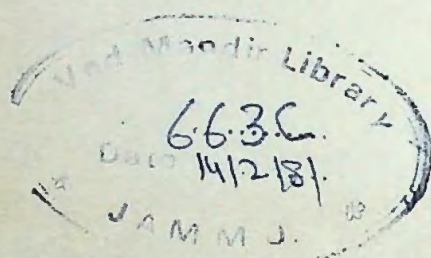 Ved Mandir Library
6.6.3.C.
Date 14/2/81.
JAMMU.